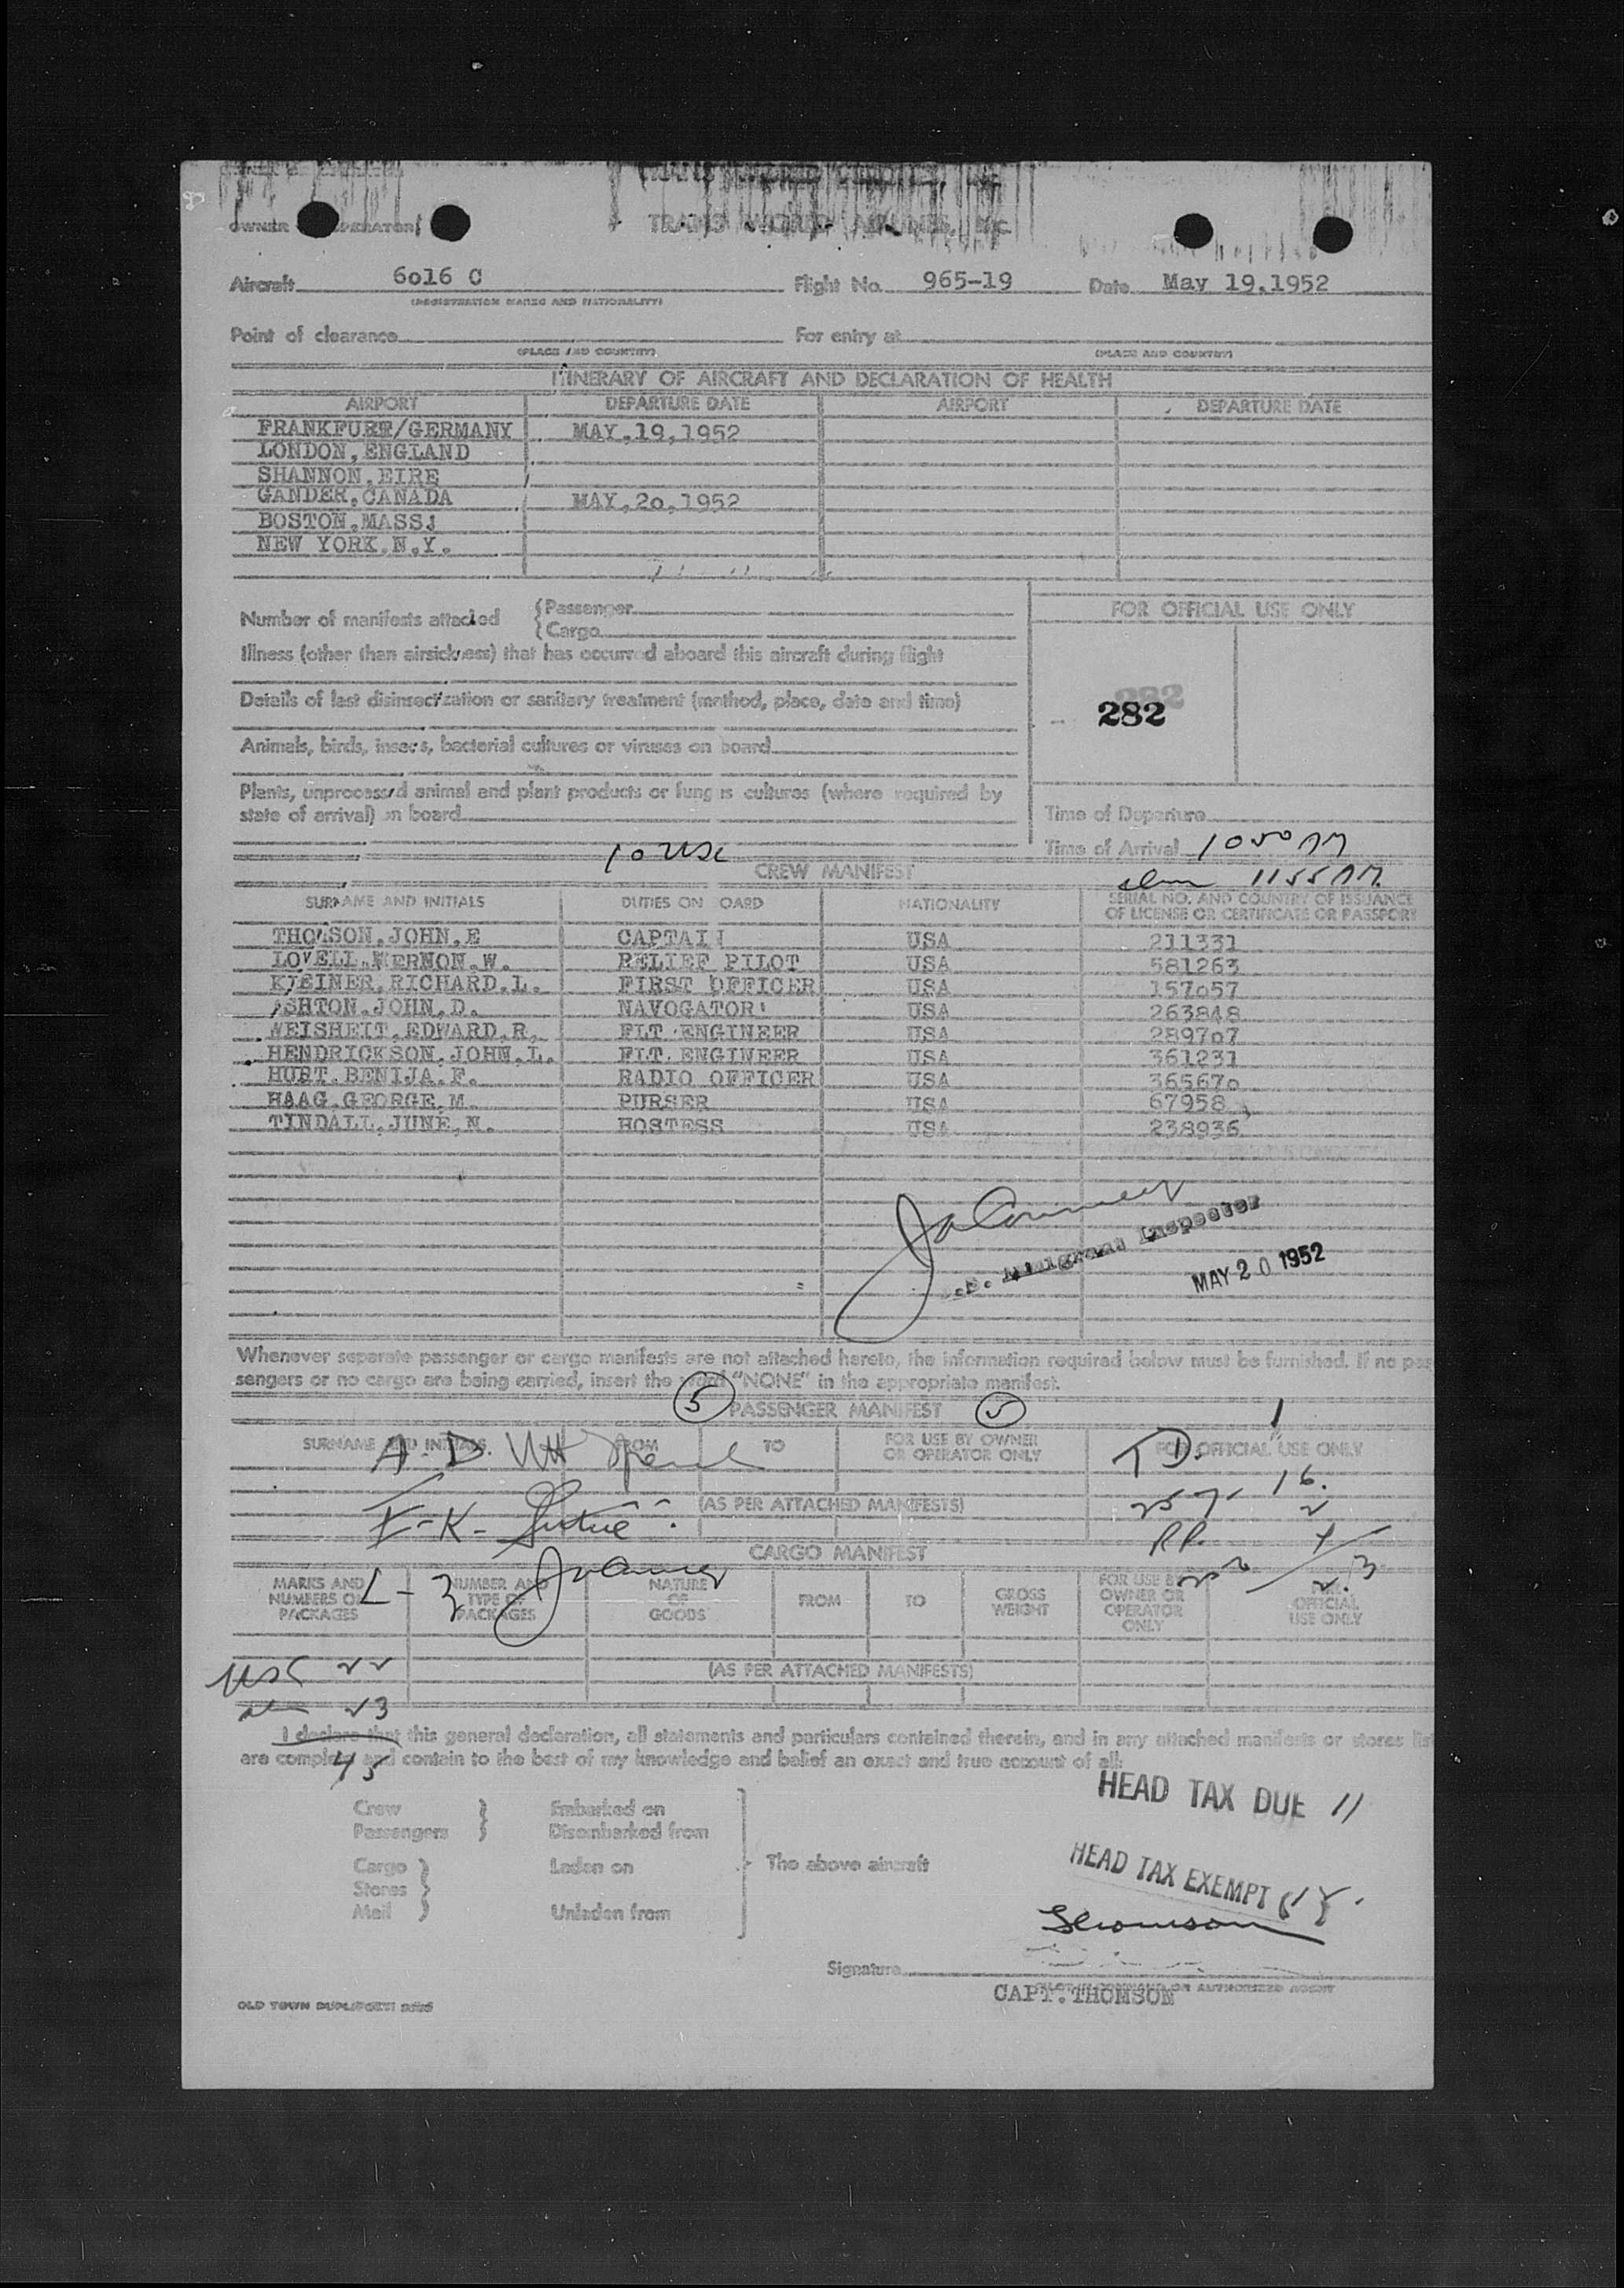 OWNER OPERATOR
TRANS WORLD AIRLINES, Inc.
Aircraft 6o16 C Flight No. 965-19 Date May 19,1952
(REGISTRATION MARKS AND NATIONALITY)
Point of clearance For entry at
(PLACE AND COUNTRY) (PLACE AND COUNTRY)
ITINERARY OF AIRCRAFT AND DECLARATION OF HEALTH
AIRPORT DEPARTURE DATE AIRPORT DEPARTURE DATE
FRANKFURT/GERMANY MAY,19,1952
LONDON,ENGLAND
SHANNON,EIRE
GANDER,CANADA MAY,2o,1952
BOSTON,MASS;
NEW YORK.N.Y.
Number of manifests attached { Passenger
{ Cargo
FOR OFFICIAL USE ONLY
Illness (other than airsickness) that has occurred aboard this aircraft during flight
Details of last disinsectization or sanitary treatment (method, place, date and time)
282
Animals, birds, insects, bacterial cultures or viruses on board
Plants, unprocessed animal and plant products or fungus cultures (where required by
state of arrival) on board
Time of Departure
Time of Arrival 1050 AM
10 USC
1155 AM.
CREW MANIFEST
SURNAME AND INITIALS DUTIES ON OARD NATIONALITY SERIAL NO. AND COUNTRY OF ISSUANCE
OF LICENSE OR CERTIFICATE OR PASSPORT
THOMSON.JOHN.E CAPTAIN USA 211331
LOVELL.WERNON.W. RELIEF PILOT USA 581263
KLEINER.RICHARD.L. FIRST OFFICER USA 157o57
ASHTON.JOHN.D. NAVOGATOR USA 263848
WEISHEIT.EDWARD.R. FLT ENGINEER USA 2897o7
HENDRICKSON.JOHN.L. FLT.ENGINEER USA 361231
HURT.BENIJA.F. RADIO OFFICER USA 36567o
HAAG.GEORGE.M. PURSER USA 67958
TINDALL.JUNE.N. HOSTESS USA 238936
Immigrant Inspector
MAY 20 1952
Whenever separate passenger or cargo manifests are not attached hereto, the information required below must be furnished. If no pas
sengers or no cargo are being carried, insert the word "NONE" in the appropriate manifest.
5 PASSENGER MANIFEST 5
SURNAME AND INITIALS FROM TO FOR USE BY OWNER
OR OPERATOR ONLY FOR OFFICIAL USE ONLY
A. D. T.D. 1
(AS PER ATTACHED MANIFESTS) 16.
I-K- R.P.
CARGO MANIFEST
MARKS AND
NUMBERS ON
PACKAGES
NUMBER AND
TYPE OF
PACKAGES
NATURE
OF
GOODS
FROM TO GROSS
WEIGHT
FOR USE BY
OWNER OR
OPERATOR
ONLY
OFFICIAL
USE ONLY
L-3
(AS PER ATTACHED MANIFESTS)
USC 22
23
45
I declare that this general declaration, all statements and particulars contained therein, and in any attached manifests or stores list
are complete and contain to the best of my knowledge and belief an exact and true account of all:
HEAD TAX DUE 11
Crew } Embarked on
Passengers } Disembarked from
HEAD TAX EXEMPT
Cargo } Laden on The above aircraft
Stores }
Mail } Unladen from
Thomson
Signature
PILOT IN COMMAND OR AUTHORIZED AGENT
CAPT.THOMSON
OLD TOWN